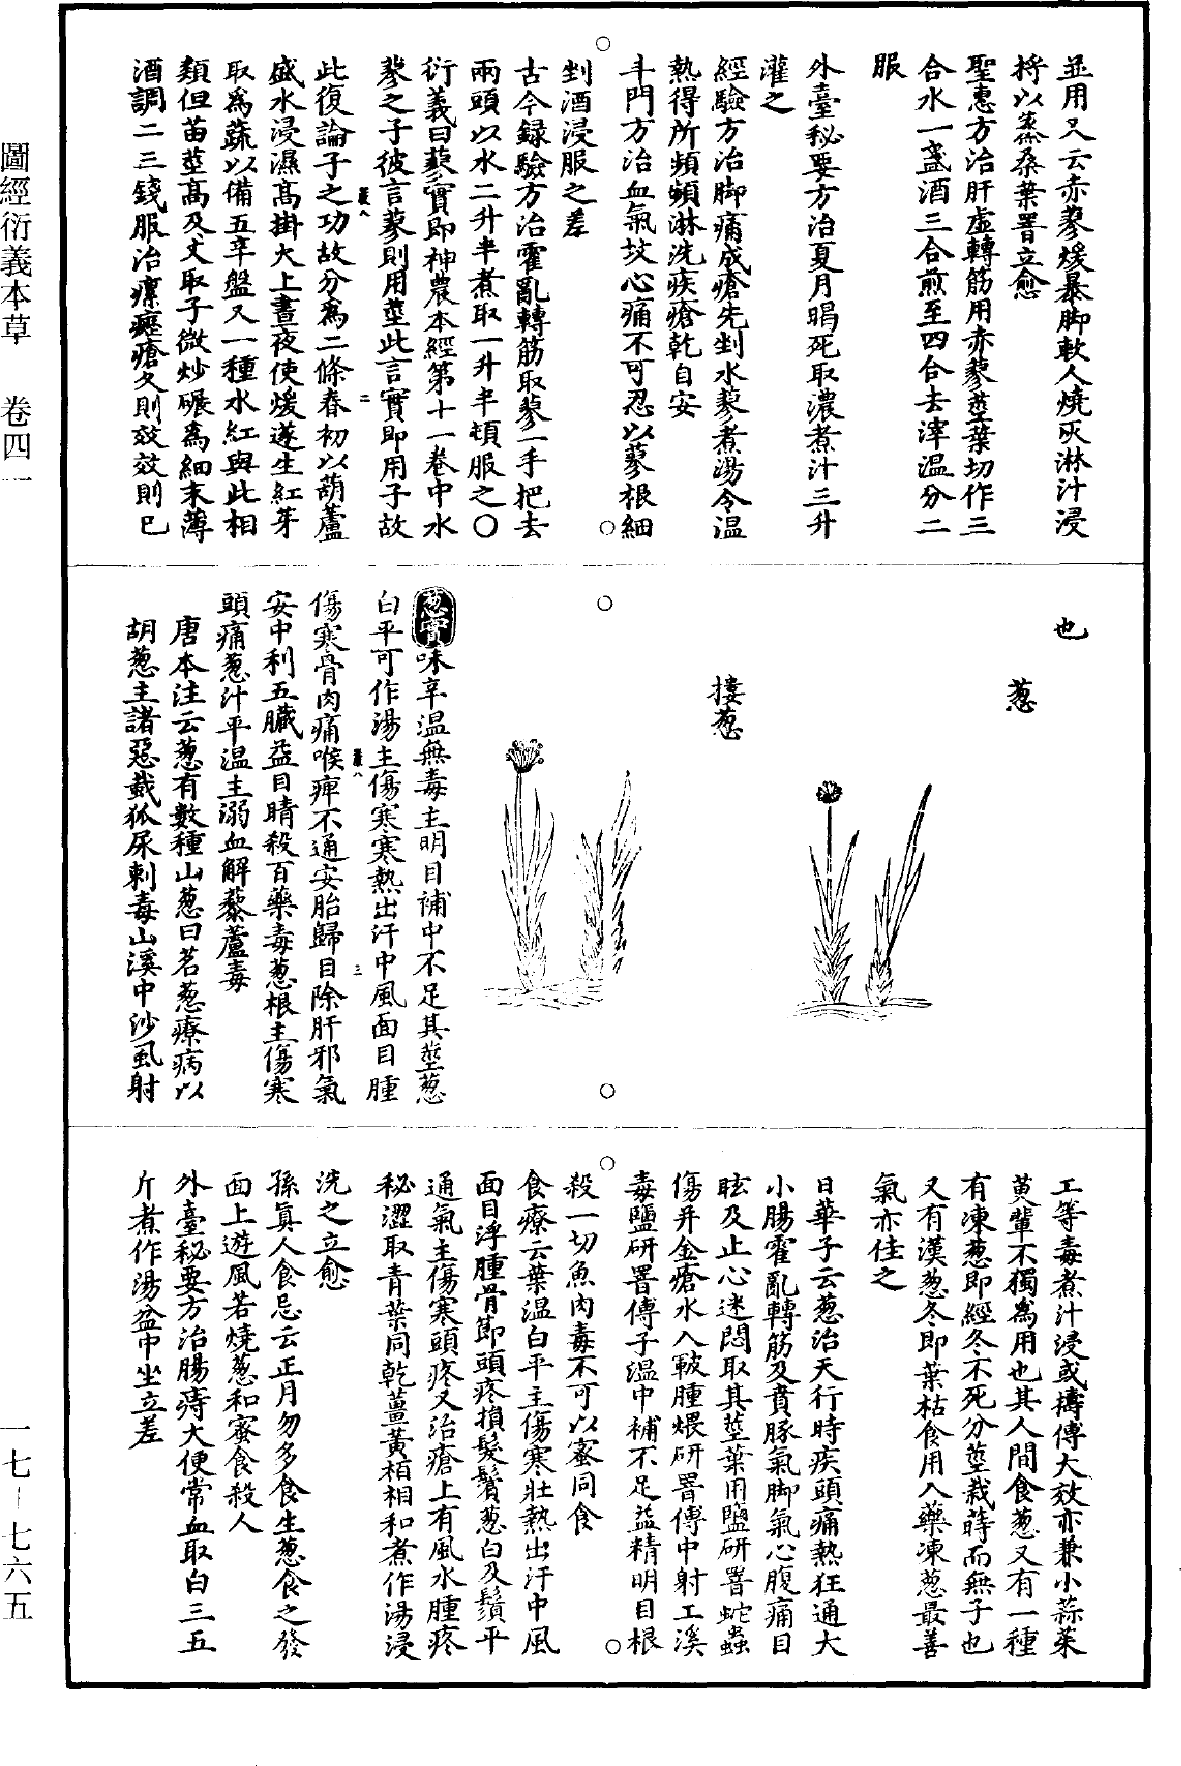 並用又云赤蓼煖暴脚軟人燒灰淋汁浸
捋以蒸桑葉罯立愈
聖惠方治肝虛轉筋用赤蓼莖葉切作三
合水一盞酒三合煎至四合去滓溫分二
服
外臺秘要方治夏月暍死取濃煮汁三升
灌之
經驗方治脚痛成瘡先剉水蓼煮湯令溫
熱得所頻頻淋洗疾瘡乾自安
斗門方治血氣攻心痛不可忍以蓼根細
剉酒浸服之差
古今錄驗方治霍亂轉筋取蓼一手把去
兩頭以水二升半煮取一升半頓服之○
衍義曰蓼實即神農本經第十一卷中水
蓼之子彼言蓼則用莖此言實即用子故
此復論子之功故分爲二條春初以葫蘆
盛水浸濕高掛大上晝夜使煖遂生紅芽
取爲蔬以備五辛盤又一種水紅與此相
類但苗莖高及丈取子微炒碾爲細末薄
酒調二三錢服治瘰癧瘡久則效效則已
也
葱
樓葱
葱實味辛溫無毒主明目補中不足其莖葱
白平可作湯主傷寒寒熱出汗中風面目腫
傷寒骨肉痛喉痺不通安胎歸目除肝邪氣
安中利五臟益目睛殺百藥毒葱根主傷寒
頭痛葱汁平溫主溺血解藜蘆毒
唐本注云葱有數種山葱曰茖葱療病以
胡葱主諸惡䖧狐尿刺毒山溪中沙虱射
工等毒煮汁浸或擣傅大效亦兼小蒜茱
萸輩不獨爲用也其人間食葱又有一種
有凍葱即經冬不死分莖栽蒔而無子也
又有漢葱冬即葉枯食用入藥凍葱最善
氣亦佳之
日華子云葱治天行時疾頭痛熱狂通大
小腸霍亂轉筋及賁豚氣脚氣心腹痛目
眩及止心迷悶取其莖葉用鹽研罯蛇蟲
傷并金瘡水入皸腫煨研罯傅中射工溪
毒鹽研罯傅子溫中補不足益精明目根
殺一切魚肉毒不可以蜜同食
食療云葉溫白平主傷寒壯熱出汗中風
面目浮腫骨節頭疼損髮鬢葱白及鬚平
通氣主傷寒頭疼又治瘡上有風水腫疼
秘澀取青葉同乾薑黃栢相和煮作湯浸
洗之立愈
孫真人食忌云正月勿多食生葱食之發
面上遊風若燒葱和蜜食殺人
外臺秘要方治腸痔大便常血取白三五
斤煮作湯盆中坐立差
圖經衍義本草　卷四一
一七－七六五